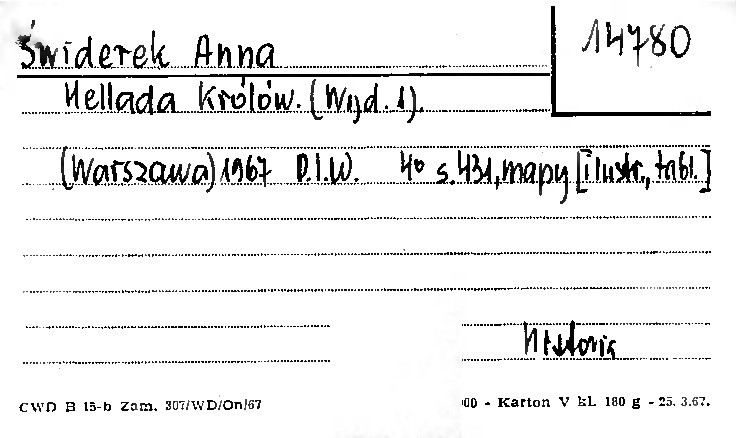 Świderek Anna
14780
Hellada Królów. (Wyd. 1).
(Warszawa) 1967 P.I.W. 4° s. 431, mapy [ilustr., tabl.]
Historia
CWD B 15-b Zam. 307/WD/On/67
00 - Karton V kl. 180 g - 25. 3.67.